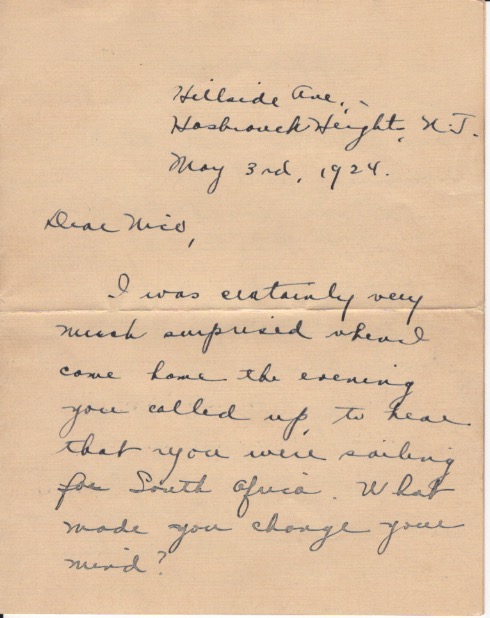 Hillside Ave., -
Hasbrouck Heights, N.J.
May 3rd, 1924.
Dear Nico,
I was certainly very
much surprised when I
came home the evening
you called up, to hear
that you were sailing
for South Africa. What
made you change your
mind?